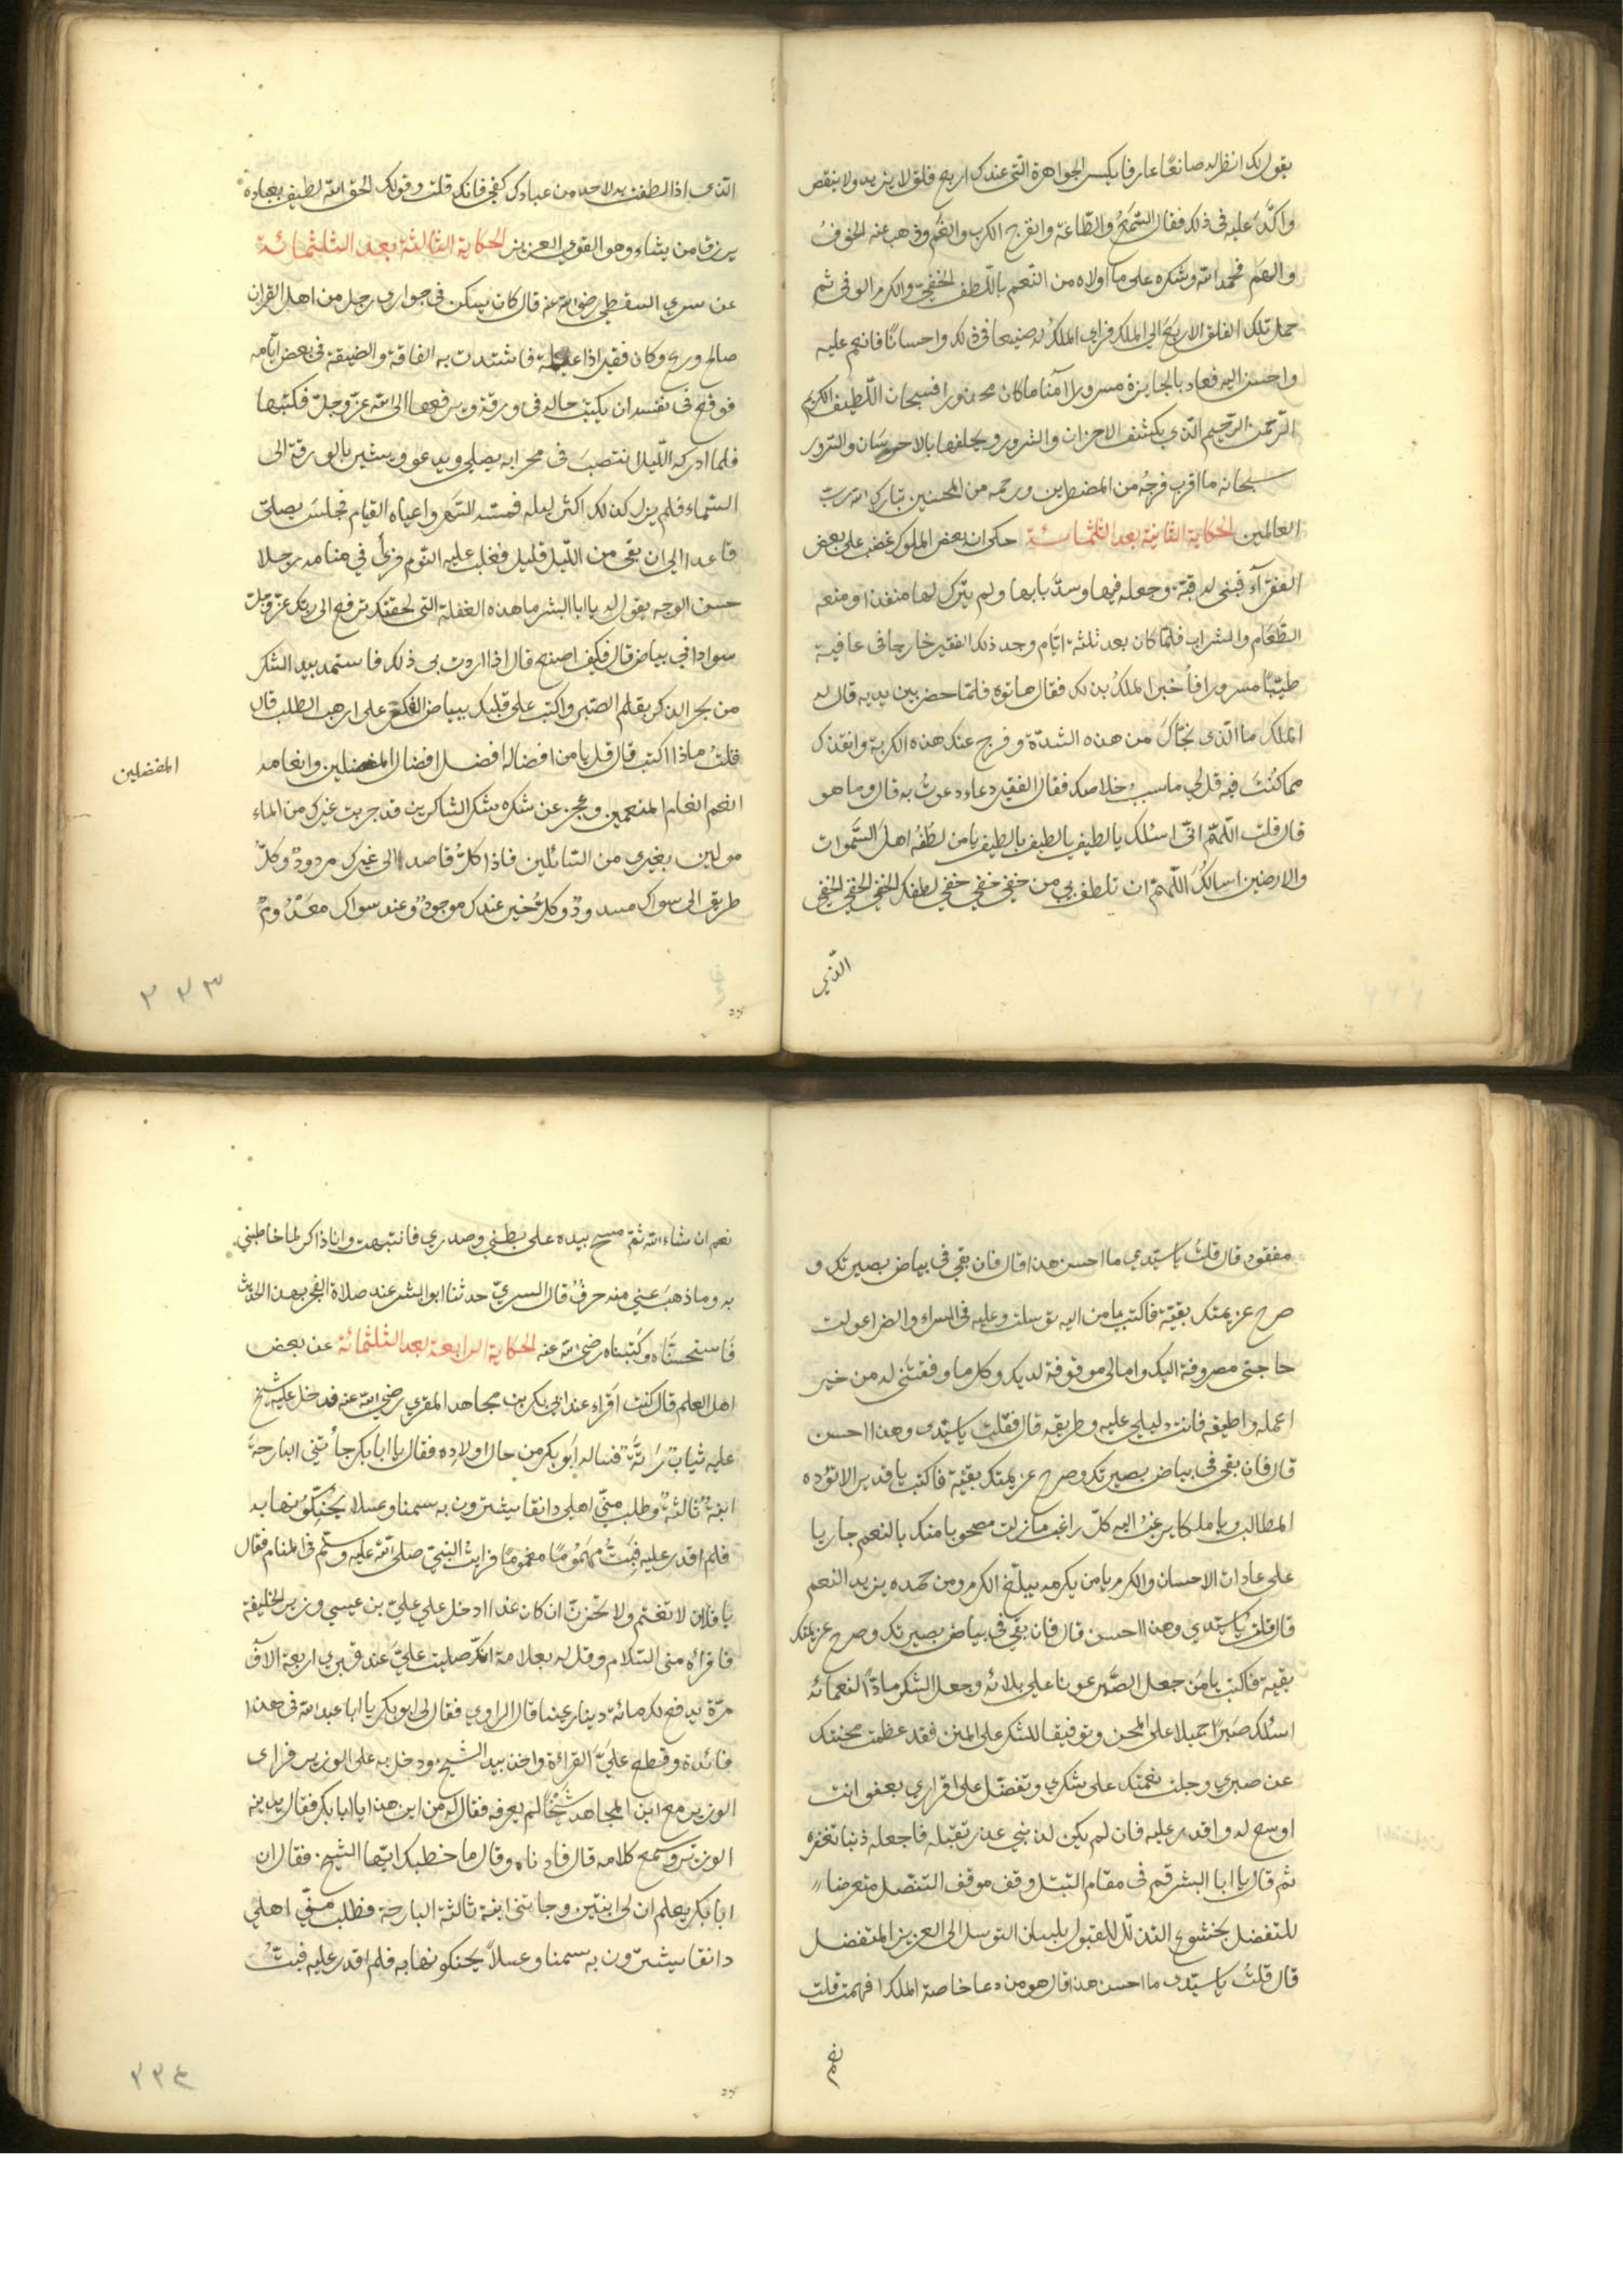 يقول لك انظر له صانعًا عارفا يكسر الجواهرة التي عندك اربع فلق لا يزيد ولا ينقص
واكّد عليه في ذلك فقال السَّمعُ والطّاعة وانفرج الكرب والغم وذهب عنه الخوفُ
والهَم فحمد الله وشكره على ما اولاه من النّعم باللّطف الخفيّ والكرم الوفي ثم
حمل تلك الفلق الاربَع الى الملك فراى الملكُ له صنيعا في ذلك واحسانًا فانعم عليه
واحسن اليه فعاد بالجايزة مسرورا آمنا ما كان محذورا فسبحان اللّطيف الكريم
الرّحمن الرّحيم الّذي يكشف الاحزان والشرور ويخلفها بالاحسَان والسّرور
سبحانه ما اقرب فرجُه من المضطرين ورحمه من المحسنين تبارك الله ربّ
العالمين الحكاية الثانية بعد الثلثمائــة حكى ان بعض الملوك غضب على بعض
الفقرآء فبنى له قبّة وجعله فيها وسدّ بابها ولم يترك لها منفذا ومنعه
الطَّعَام والشراب فلمّا كان بعد ثلثة ايّام وجد ذلك الفقير خارجا في عافية
طيّبًا مسرورا فأخبر الملكُ بذلك فقال هاتوه فلمّا حضر بين يديه قال له
الملك ما الّذى نجّاكَ من هذه الشدّة وفرج عنك هذه الكربة وانقذك
مما كُنْتَ فيه قل لي ما سببُ خلاصك فقال الفقير دعاء دعوتُ به قال وما هو
قال قلت اللّهمّ انّى اسئلك يالطيف يالطيف يالطيف يامن لطفُه اهلَ السَّموات
والارضين اسالكَُ اللّهمّ ان تلطف بي من خفي خفي خفي لطفك الخفي الخفي الخفي
الذّي
الّذى اذا لطفت به لاحد من عبادك كفي فانك قلت وقولك الحق الله لطيف بعباده
يرزق من يشاء وهو القوي العزيز الحكاية الثالثة بعد الثلثمائــة
عن سري السقطي رضى الله عنه قال كان يسكن في جواري رجل من اهل القران
صالح ورع وكان فقيرا ذا عيلة فاشتدت به الفاقة والضيقة فى بعض ايّامه
فوقع في نفسه ان يكتب حاله في ورقة ويرفعها الى الله عزّ وجلّ فكتبها
فلما ادركه اللّيل انتصبَ فى محرابه يصلي ويدعو ويشير بالورقة الى
السّماء فلم يزل كذلك اكثر ليله فمسّه السَّهر واعياه القيام فجلسَ يصلّى
قاعدا الى ان بقى من اللّيل قليل فغلب عليه النّوم فرأى في منامه رجلا
حسن الوجه يقول له يا ابا البشر ما هذه الغفلة التى لحقتك ترفع الى ربّك عزّ وجلّ
سوادا في بياض قال فكيف اصنع قال اذا اردت بي ذلك فاستمد بيد الشكر
من بحر الذكر بقلم الصّبر واكتب على قلبك ببياض الفكر على ارهب الطلب قال
قلتُ ماذا اكتب قال قل يامن افضاله افضل افضال المفضلين وانعامه
المفضلين
انعم انعام المنعمين وعجز عن شكره شكر الشاكرين قد جربت غيرك من الماء
مولين بغيرى من السّائلين فاذا كلُّ قاصد الى غيرك مردودٌ وكلّ
طريق الى سواك مسدودٌ وكلُّ خير عندك موجودٌ وعند سواك معدُومٌ
٣٣٣
مفقود قال قلتُ يا سيّدي ما احسن هذا قال فان بقي في بياض بصيرتك و
صرح عزيمتك بقيّة فاكتب يا من اليه توسلت وعليه فى السراء والضرا عولت
حاجتي مصروفة اليك وامالي موقوفة لديك وكل ما وفقتنى له من خير
اعمله واطيقه فانت دليلي عليه وطريقه قال فقلت يا سيّدى وهذا احسن
قال فان بقى في بياض بصيرتك وصرح عزيمتك بقيّة فاكتب يا قدير الا تؤده
المطالب ويا ملكا يرغبُ اليه كلّ راغب ما زلت مصحوبا منك بالنعم جاريا
على عادات الاحسان والكرم يا من يكرمه يبلغ الكرم ومن حمده يزيد النعم
قال قلت يا سيّدي وهذا احسن قال فان بقي في بياض بصيرتك وصرح عزيمتك
بقية فاكتب يامَن جعل الصَّبر عونا على بلائه وجعل الشكر مادّاً لنعمائه
اسئلك صَبرًا جميلا على المحن وتوفيقا للشكر على المنن فقد عظمت محنتك
عن صبري وجلت نعمتك على شكري وتفضّل على اقراري بعفو انت
اوسع له واقدر عليه فان لم يكن لذنبي عذر تقبّله فاجعله ذنبا تغفره
ثم قال يا ابا البشر قم فى مقام التبتل وقف موقف التنصّل متعرضا
للتفضل بخشوع التذلّل للقبول بلسان التوسل الى العزيز المتفضل
قال قلتُ يا سيّدى ما احسن هذا قال هو من دعا خاصة الملك افهمت قلت
نعم
نعم ان شاء الله ثمّ مسح بيده على بطني وصدري فانتبهت وانا ذاكر لما خاطبني
به وما ذهبَ عني منه حرفٌ قال السريّ حدثنا ابو البشر عند صلاة الفجر بهذا الحديث
فاستحسنّاه وكتبناه رضى الله عنه الحكاية الرابعة بعد الثلثمائة عن بعض
اهل العلم قال كنت اقراء عند ابي بكر بن مجاهد المقري رضي الله عنه فدخل عليه شيخ
عليه ثيابٌ رَثّةٌ فساله ابو بكر من حال اولاده فقال يا ابا بكر جأتني البارحةَ
ابنةٌ ثالثةٌ وطلب منّي اهلي دانقا يشترون به سمنا وعسلا يُحَنِّكُونها به
فلم اقدر عليه فبَتُّ مهمومًا مغمومًا فرايت النبيّ صلى الله عليه وسلّم فى المنام فقال
يا فلان لا تغتم ولا تحزن ان كان غدا ادخل على عليّ بن عيسى وزير الخليفة
فاقرأه منى السّلام وقل له بعلامة انّك صليت عليَّ عند قبري اربعة الآف
مرّة يدفع لك مائة دينار عينا قال الراوي فقال لى ابو بكر يا ابا عبد الله فى هذا
فائدة وقطع عليَّ القرأة واخذ بيد الشيخ ودخل به على الوزير فراى
الوزير مع ابن المجاهد شيخًا لم يعرفه فقال له من اين هذا يا ابا بكر فقال يدنيه
الوزير ويسمع كلامه قال فادناه وقال ما خطبك ايّها الشيخ فقال ان
ابا بكر يعلم ان لى ابنتين وجاتنى ابنة ثالثة البارحة فطلب منّي اهلي
دانقا يشترون به سمنا وعسلاً يحنكونها به فلم اقدر عليه فبتُّ
٣٣٤